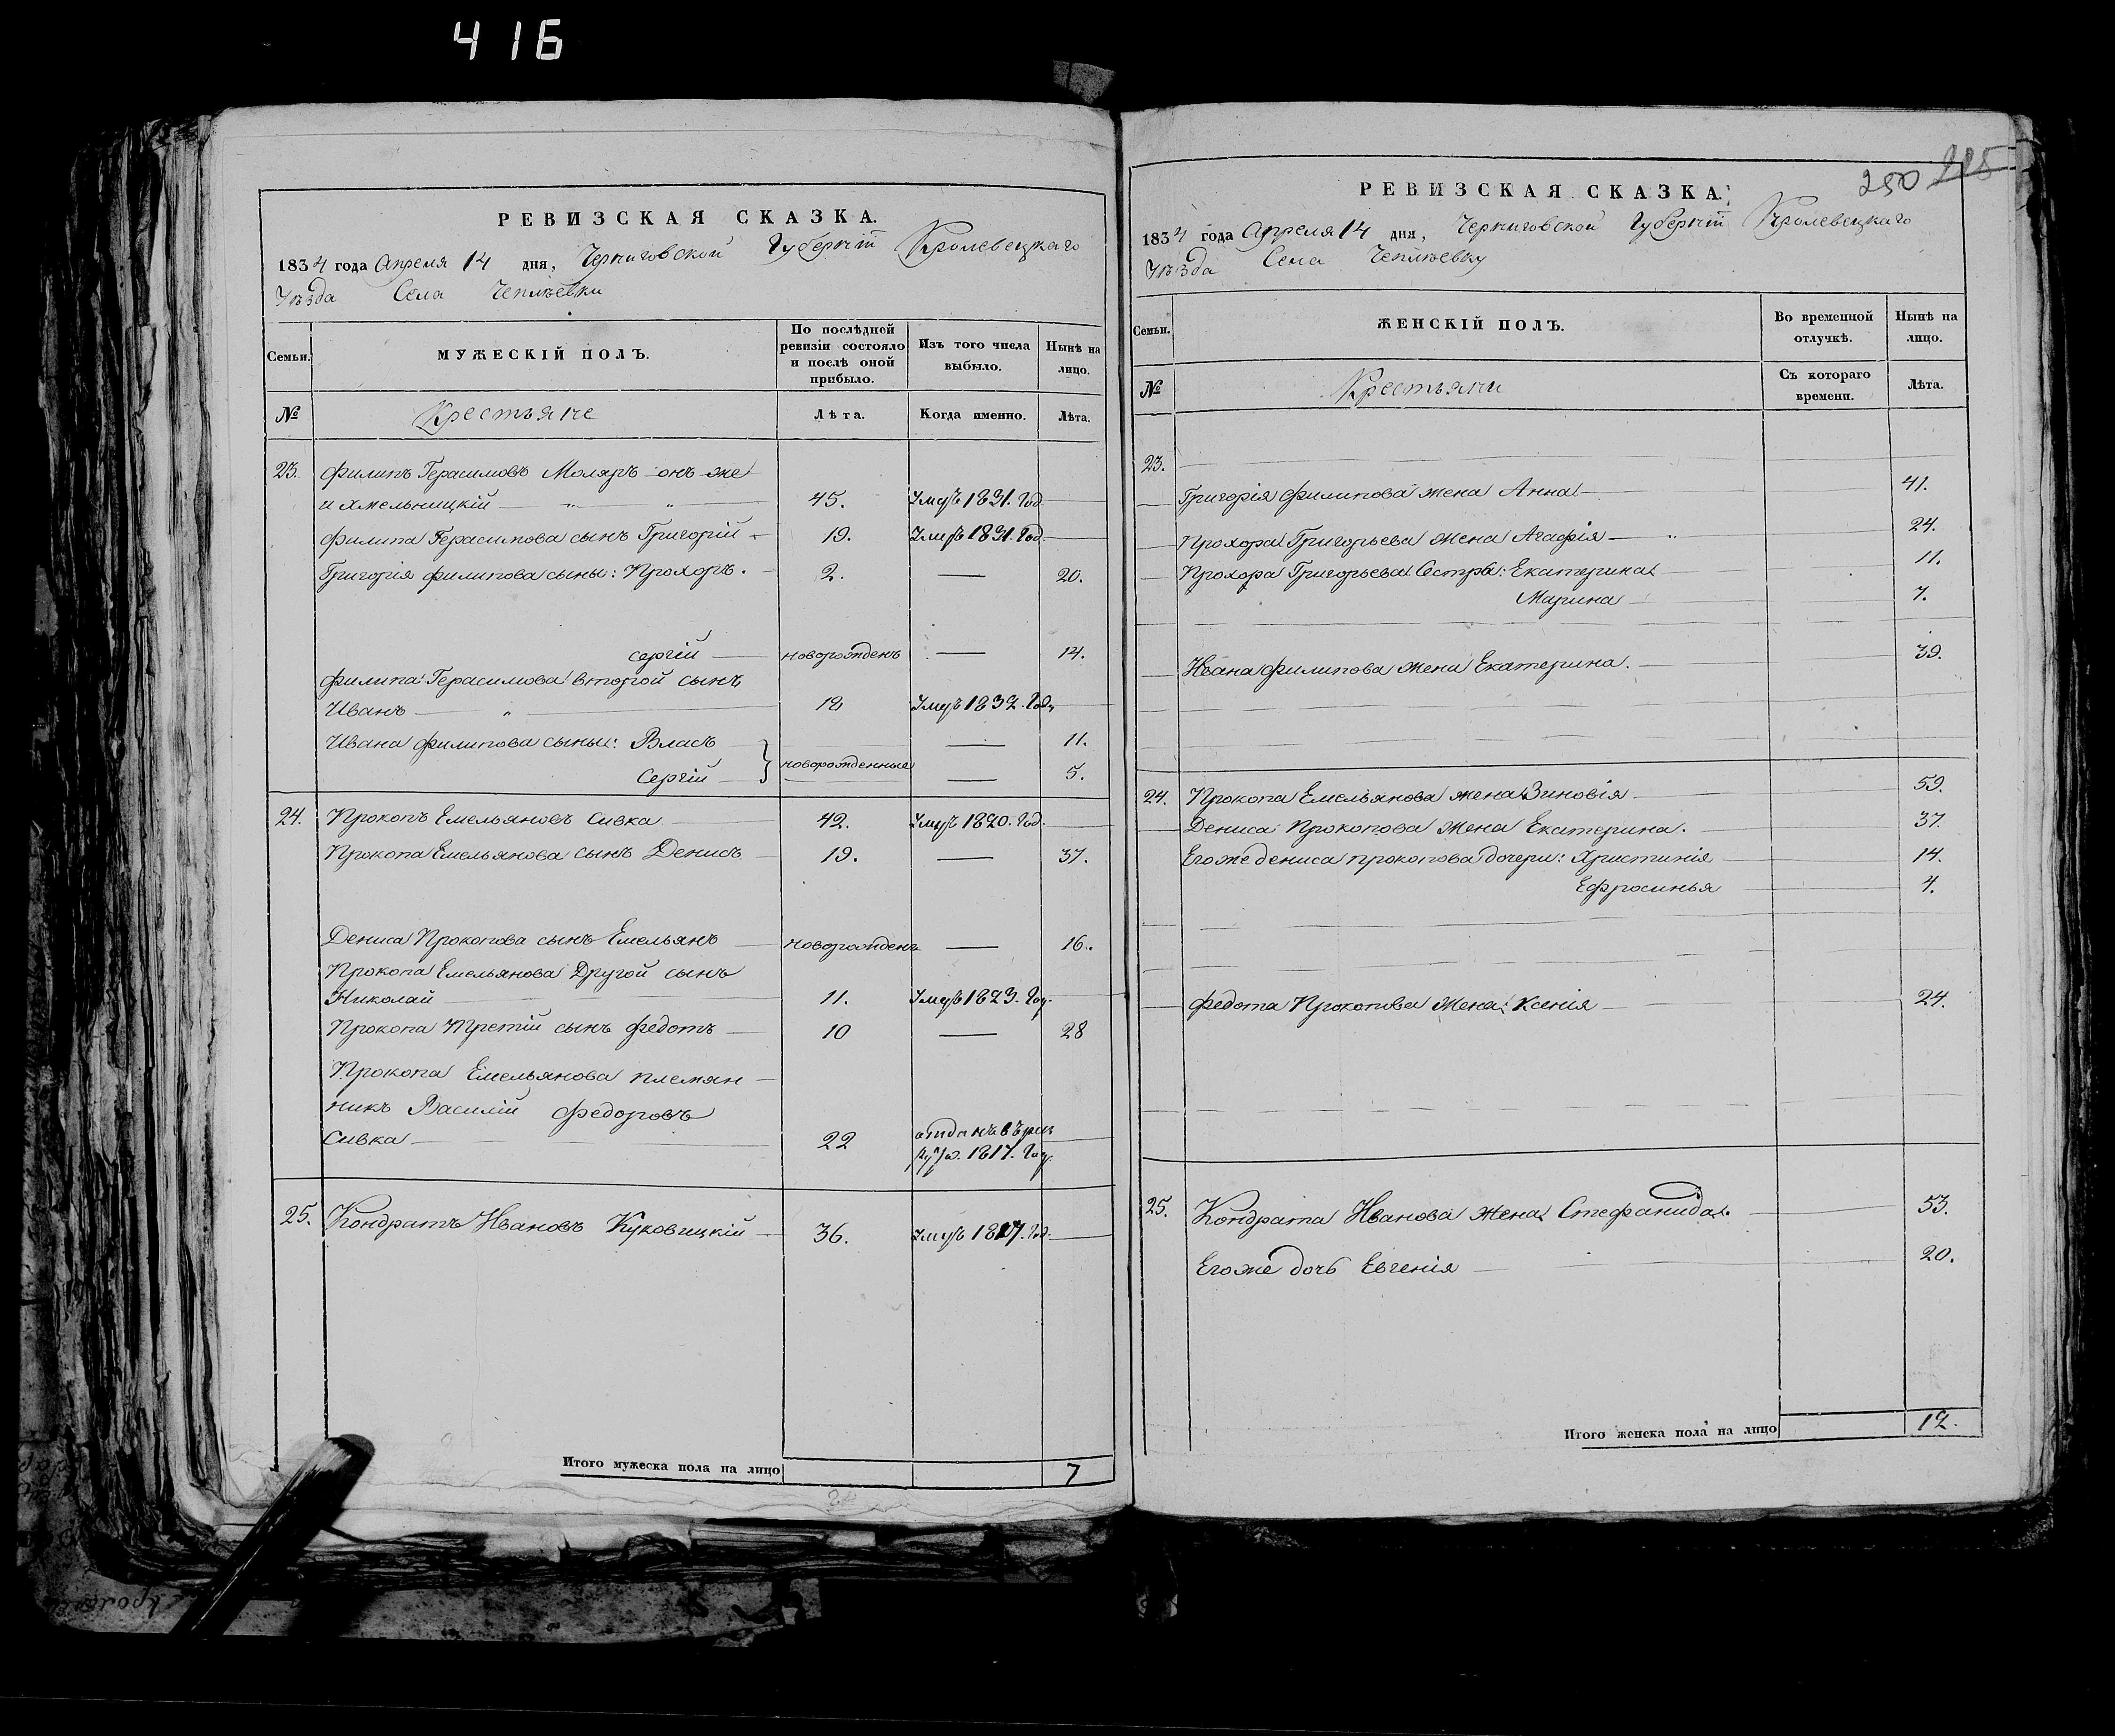 416
РЕВИЗСКАЯ СКАЗКА.
1834 года Апреля 14 дня, Черниговской Губерніи Кролевецкаго
Уѣзда Села Чепліевки
Семьи.
МУЖЕСКІЙ ПОЛЪ.
По послѣдней ревизіи состояло и послѣ оной прибыло.
Изъ того числа выбыло.
Нынѣ на лицо.
№
Крестьяне
Лѣта.
Когда именно.
Лѣта.
23. Филипъ Герасимовъ Моляръ онъ же
и Хмельницкій 45. Умеръ 1831. Год.
Филипа Герасимова сынъ Григорій 19. Умеръ 1831. Год.
Григорія Филипова сыны: Прохоръ. 2. 20.
Сергій новорожденъ 14.
Филипа Герасимова второй сынъ
Иванъ 18 Умеръ 1832. Год.
Ивана Филипова сыны: Власъ 11.
новорожденные
Сергій 5.
24. Прокопъ Емельяновъ Сивка 42. Умеръ 1820. Год.
Прокопа Емельянова сынъ Денисъ 19. 37.
Дениса Прокопова сынъ Емельянъ новорожденъ 16.
Прокопа Емельянова Другой сынъ
Николай 11. Умеръ 1823. Год.
Прокопа Третій сынъ Федотъ 10 28
Прокопа Емельянова племян-
никъ Василій Федоровъ
Сивка 22 отданъ въ рек
руты 1817. Год.
25. Кондратъ Ивановъ Куковицкій 36. Умеръ 1817. Год.
Итого мужеска пола на лицо 7
250 215
РЕВИЗСКАЯ СКАЗКА.
1834 года Апреля 14 дня, Черниговской Губерніи Кролевецкаго
Уѣзда Села Чепліевки
Семьи.
ЖЕНСКІЙ ПОЛЪ.
Во временной отлучкѣ.
Нынѣ на лицо.
№
Крестьяни
Съ котораго времени.
Лѣта.
23.
Григорія Филипова жена Анна 41.
Прохора Григорьева жена Агафія 24.
Прохора Григорьева Сестры: Екатерина 11.
Марина 7.
Ивана Филипова жена Екатерина. 39.
24. Прокопа Емельянова жена Зиновія 59.
Дениса Прокопова жена Екатерина. 37.
Егоже Дениса Прокопова дочери: Христинія 14.
Ефросинья 4.
Федота Прокопова жена Ксенія 24.
25. Кондрата Иванова жена Стефанида. 53.
Егоже дочь Евгенія 20.
Итого женска пола на лицо 12.